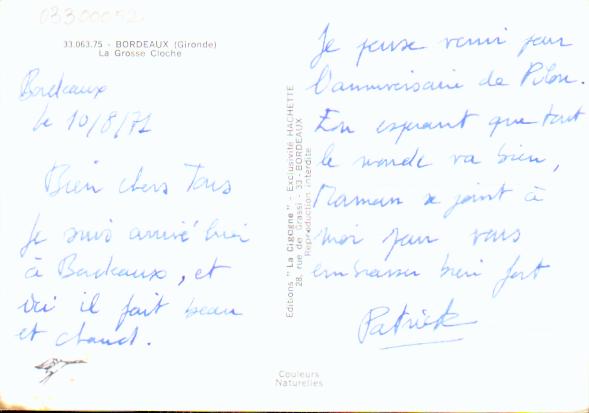 03300052
33.063.75 - BORDEAUX (Gironde)
La Grosse Cloche
Bordeaux
le 10/8/71
Bien chers Tous
Je suis arrivé hier
à Bordeaux, et
ici il fait beau
et chaud.
Editions "La Cigogne" - Exclusivité HACHETTE
28, rue de Grassi - 33 - BORDEAUX
Reproduction interdite
Je pense venir pour
l'anniversaire de
En espérant que tout
le monde va bien,
Maman se joint à
moi pour vous
embrasser bien fort
Patrick
Couleurs
Naturelles